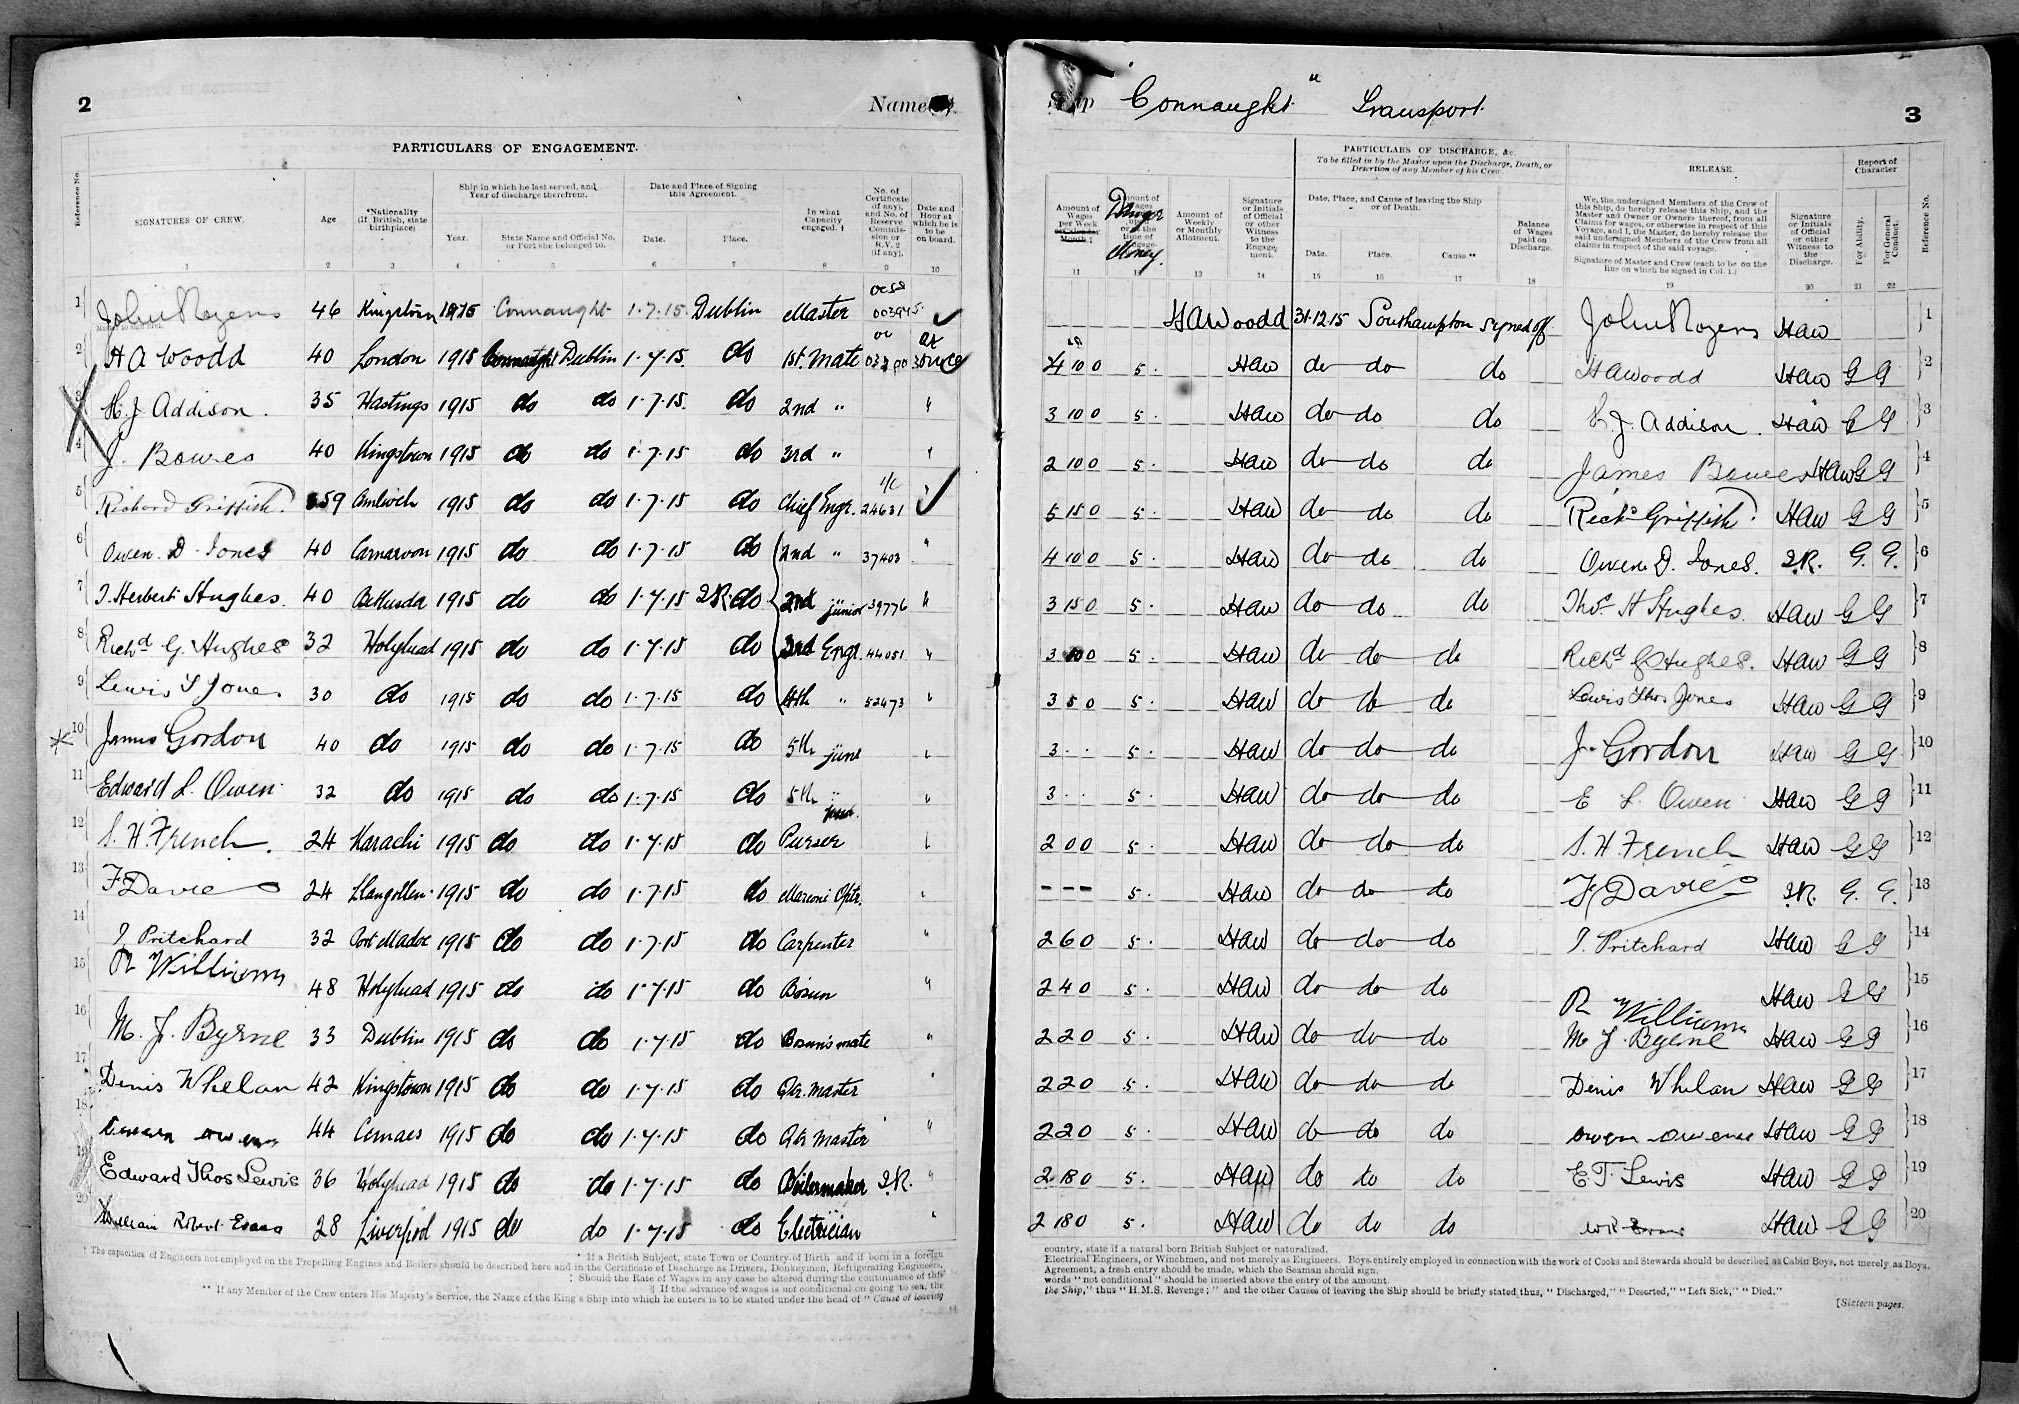 2
Name of
PARTICULARS OF ENGAGEMENT.
Reference No.
SIGNATURES OF CREW.
Age
*Nationality (If British, state birthplace)
Ship in which he last served, and Year of discharge therefrom.
Year.
State Name and Official No. or Port she belonged to.
Date and Place of Signing this Agreement.
Date.
Place.
In what Capacity engaged. †
No. of Certificate (if any), and No. of Reserve Commission or R.V. 2 (if any).
Date and Hour at which he is to be on board.
1 2 3 4 5 6 7 8 9 10
1 John Rogers 46 Kingstown 1915 Connaught 1.7.15 Dublin Master 003945
2 H A Woodd 40 London 1915 Connaught Dublin 1.7.15 do 1st. Mate at once
3 H. J. Addison. 35 Hastings 1915 do do 1.7.15. do 2nd "
4 J. Bowes 40 Kingstown 1915 do do 1.7.15 do 3rd "
5 Richard Griffith. 59 Amlwch 1915 do do 1.7.15 do Chief Engr. 24631 "
6 Owen. D. Jones 40 Carnarvon 1915 do do 1.7.15 do 2nd " 37403 "
7 T. Herbert Hughes. 40 Bethesda 1915 do do 1.7.15 J.R. do 2nd junior 39776 "
8 Richd G. Hughes 32 Holyhead 1915 do do 1.7.15 do 3rd Engr. 44051 "
9 Lewis T Jones 30 do 1915 do do 1.7.15 do 4th " 52473 "
10 James Gordon 40 do 1915 do do 1.7.15 do 5th "
11 Edward L. Owen. 32 do 1915 do do 1.7.15 do 5th "
12 S. H. French. 24 Karachi 1915 do do 1.7.15 do Purser "
13 F Davies 24 Llangollen. 1915 do do 1.7.15 do Marconi Optr. "
14 T Pritchard 32 Port Madoc 1915 do do 1.7.15 do Carpenter "
15 R Williams 48 Holyhead 1915 do do 1.7.15 do Bosun "
16 M. J. Byrne 33 Dublin 1915 do do 1.7.15 do Bosun's mate "
17 Denis Whelan 42 Kingstown 1915 do do 1.7.15 do Qtr. master "
18 Owen Owens 44 Cemaes 1915 do do 1.7.15 do Qtr master "
19 Edward Thos Lewis 36 Holyhead 1915 do do 1.7.15 do Boilermaker J.R. "
20 William Robert Evans 28 Liverpool 1915 do do 1.7.15 do Electrician "
† The capacities of Engineers not employed on the Propelling Engines and Boilers should be described here and in the Certificate of Discharge as Drivers, Donkeymen, Refrigerating Engineers,
* If a British Subject, state Town or Country of Birth and if born in a foreign
‡ Should the Rate of Wages in any case be altered during the continuance of this
|| If the advance of wages is not conditional on going to sea, the
** If any Member of the Crew enters His Majesty's Service, the Name of the King's Ship into which he enters is to be stated under the head of "Cause of leaving
Ship "Connaught" Transport.
3
PARTICULARS OF DISCHARGE, &c.
To be filled in by the Master upon the Discharge, Death, or Desertion of any Member of his Crew.
RELEASE.
Report of Character
Amount of Wages per Week
Danger Money.
Amount of Weekly or Monthly Allotment.
Signature or Initials of Official or other Witness to the Engagement.
Date, Place, and Cause of leaving the Ship or of Death.
Date.
Place.
Cause.**
Balance of Wages paid on Discharge.
We, the undersigned Members of the Crew of this Ship, do hereby release this Ship, and the Master and Owner or Owners thereof, from all Claims for wages, or otherwise in respect of this Voyage, and I, the Master, do hereby release the said undersigned Members of the Crew from all claims in respect of the said voyage.
Signature of Master and Crew (each to be on the line on which he signed in Col. 1.)
Signature or Initials of Official or other Witness to the Discharge.
For Ability.
For General Conduct.
Reference No.
11 12 13 14 15 16 17 18 19 20 21 22
HAWoodd 31.12.15 Southampton signed off John Rogers HAW 1
4 10 0 5. HAW do do do HAWoodd HAW G G 2
3 10 0 5. HAW do do do H J. Addison. HAW G G 3
2 10 0 5. HAW do do do James Bowes HAW G G 4
5 15 0 5. HAW do do do Richd Griffith. HAW G G 5
4 10 0 5. HAW do do do Owen D. Jones. J.R. G. G. 6
3 15 0 5. HAW do do do Thos H Hughes. HAW G G 7
3 10 0 5. HAW do do do Richd G Hughes. HAW G G 8
3 5 0 5. HAW do do do Lewis Thos Jones HAW G G 9
3 . . 5. HAW do do do J. Gordon HAW G G 10
3 . . 5. HAW do do do E L Owen HAW G G 11
2 0 0 5. HAW do do do S. H. French HAW G G 12
- - - 5. HAW do do do F Davies J.R. G. G. 13
2 6 0 5. HAW do do do T. Pritchard HAW G G 14
2 4 0 5. HAW do do do R Williams HAW G G 15
2 2 0 5. HAW do do do M J. Byrne HAW G G 16
2 2 0 5. HAW do do do Denis Whelan HAW G G 17
2 2 0 5. HAW do do do Owen Owens HAW G G 18
2 18 0 5. HAW do do do E T. Lewis HAW G G 19
2 18 0 5. HAW do do do W R Evans HAW G G 20
country, state if a natural born British Subject or naturalized.
Electrical Engineers, or Winchmen, and not merely as Engineers. Boys entirely employed in connection with the work of Cooks and Stewards should be described as Cabin Boys, not merely as Boys.
Agreement, a fresh entry should be made, which the Seaman should sign.
words "not conditional" should be inserted above the entry of the amount.
the Ship," thus "H.M.S. Revenge;" and the other Causes of leaving the Ship should be briefly stated thus, "Discharged," "Deserted," "Left Sick," "Died."
[Sixteen pages.